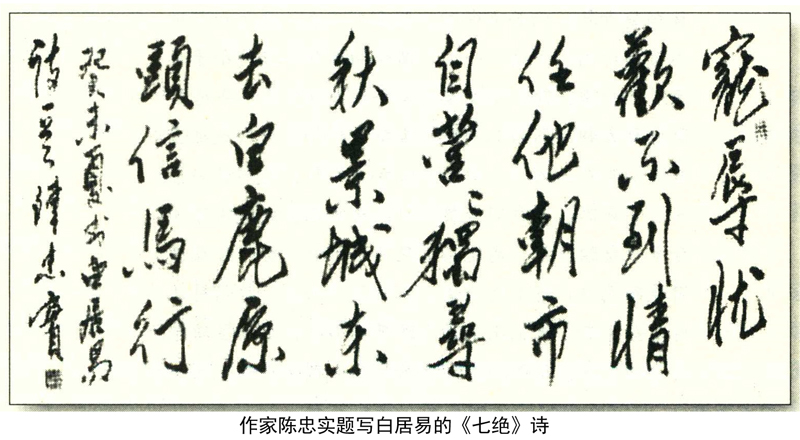 寵辱忧
歡不到情
任他朝市
自營〻獨尋
秋景城东
去白鹿原
頭信馬行
癸未夏书白居易
诗一首陳忠實
作家陈忠实题写白居易的《七绝》诗